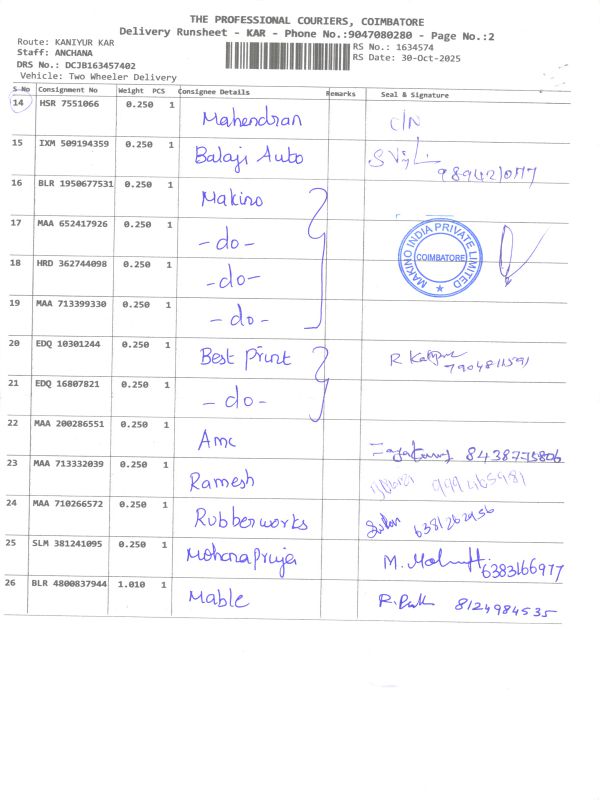 THE PROFESSIONAL COURIERS, COIMBATORE
Delivery Runsheet - KAR - Phone No.:9047080280 - Page No.:2
Route: KANIYUR KAR
Staff: ANCHANA
DRS No.: DCJB163457402
Vehicle: Two Wheeler Delivery
RS No.: 1634574
RS Date: 30-Oct-2025
S No Consignment No Weight PCS Consignee Details Remarks Seal & Signature
14 HSR 7551066 0.250 1 Mahendran C/N
15 IXM 509194359 0.250 1 Balaji Auto
16 BLR 1950677531 0.250 1 Makino
17 MAA 652417926 0.250 1 -do-
MAKINO INDIA PRIVATE LIMITED
COIMBATORE
18 HRD 362744098 0.250 1 -do-
19 MAA 713399330 0.250 1 -do-
20 EDQ 10301244 0.250 1 Best Print R
21 EDQ 16807821 0.250 1 -do-
22 MAA 200286551 0.250 1 Amc
23 MAA 713332039 0.250 1 Ramesh
24 MAA 710266572 0.250 1 Rubberworks 6381262956
25 SLM 381241095 0.250 1 Mohanapriya M. 6383166977
26 BLR 4800837944 1.010 1 Mable R. 8124984535